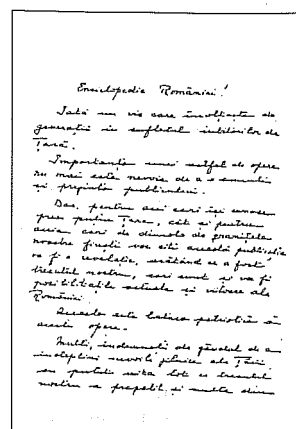 Enciclopedia României!
Iată un vis care încolțește de
generații în sufletul iubitorilor de
Țară.
Importanța unei astfel de opere
nu mai este nevoie de a o semnala
și prezinta publicului.
Dar, pentru acei cari își cunosc
prea puțin Țara, cât și pentru
aceia cari de dincolo de granițele
noastre firești vor citi această publicație
va fi o revelație, arătând ce a fost
trecutul nostru, cari sunt și va fi
posibilitățile actuale și viitoare ale
României.
Aceasta este latura patriotică a
acestei opere.
Mulți, îndemnați de gândul de a
îndeplini nevoile zilnice ale Țării
au putut uita tot ce trecutul
nostru a pregătit și multe din